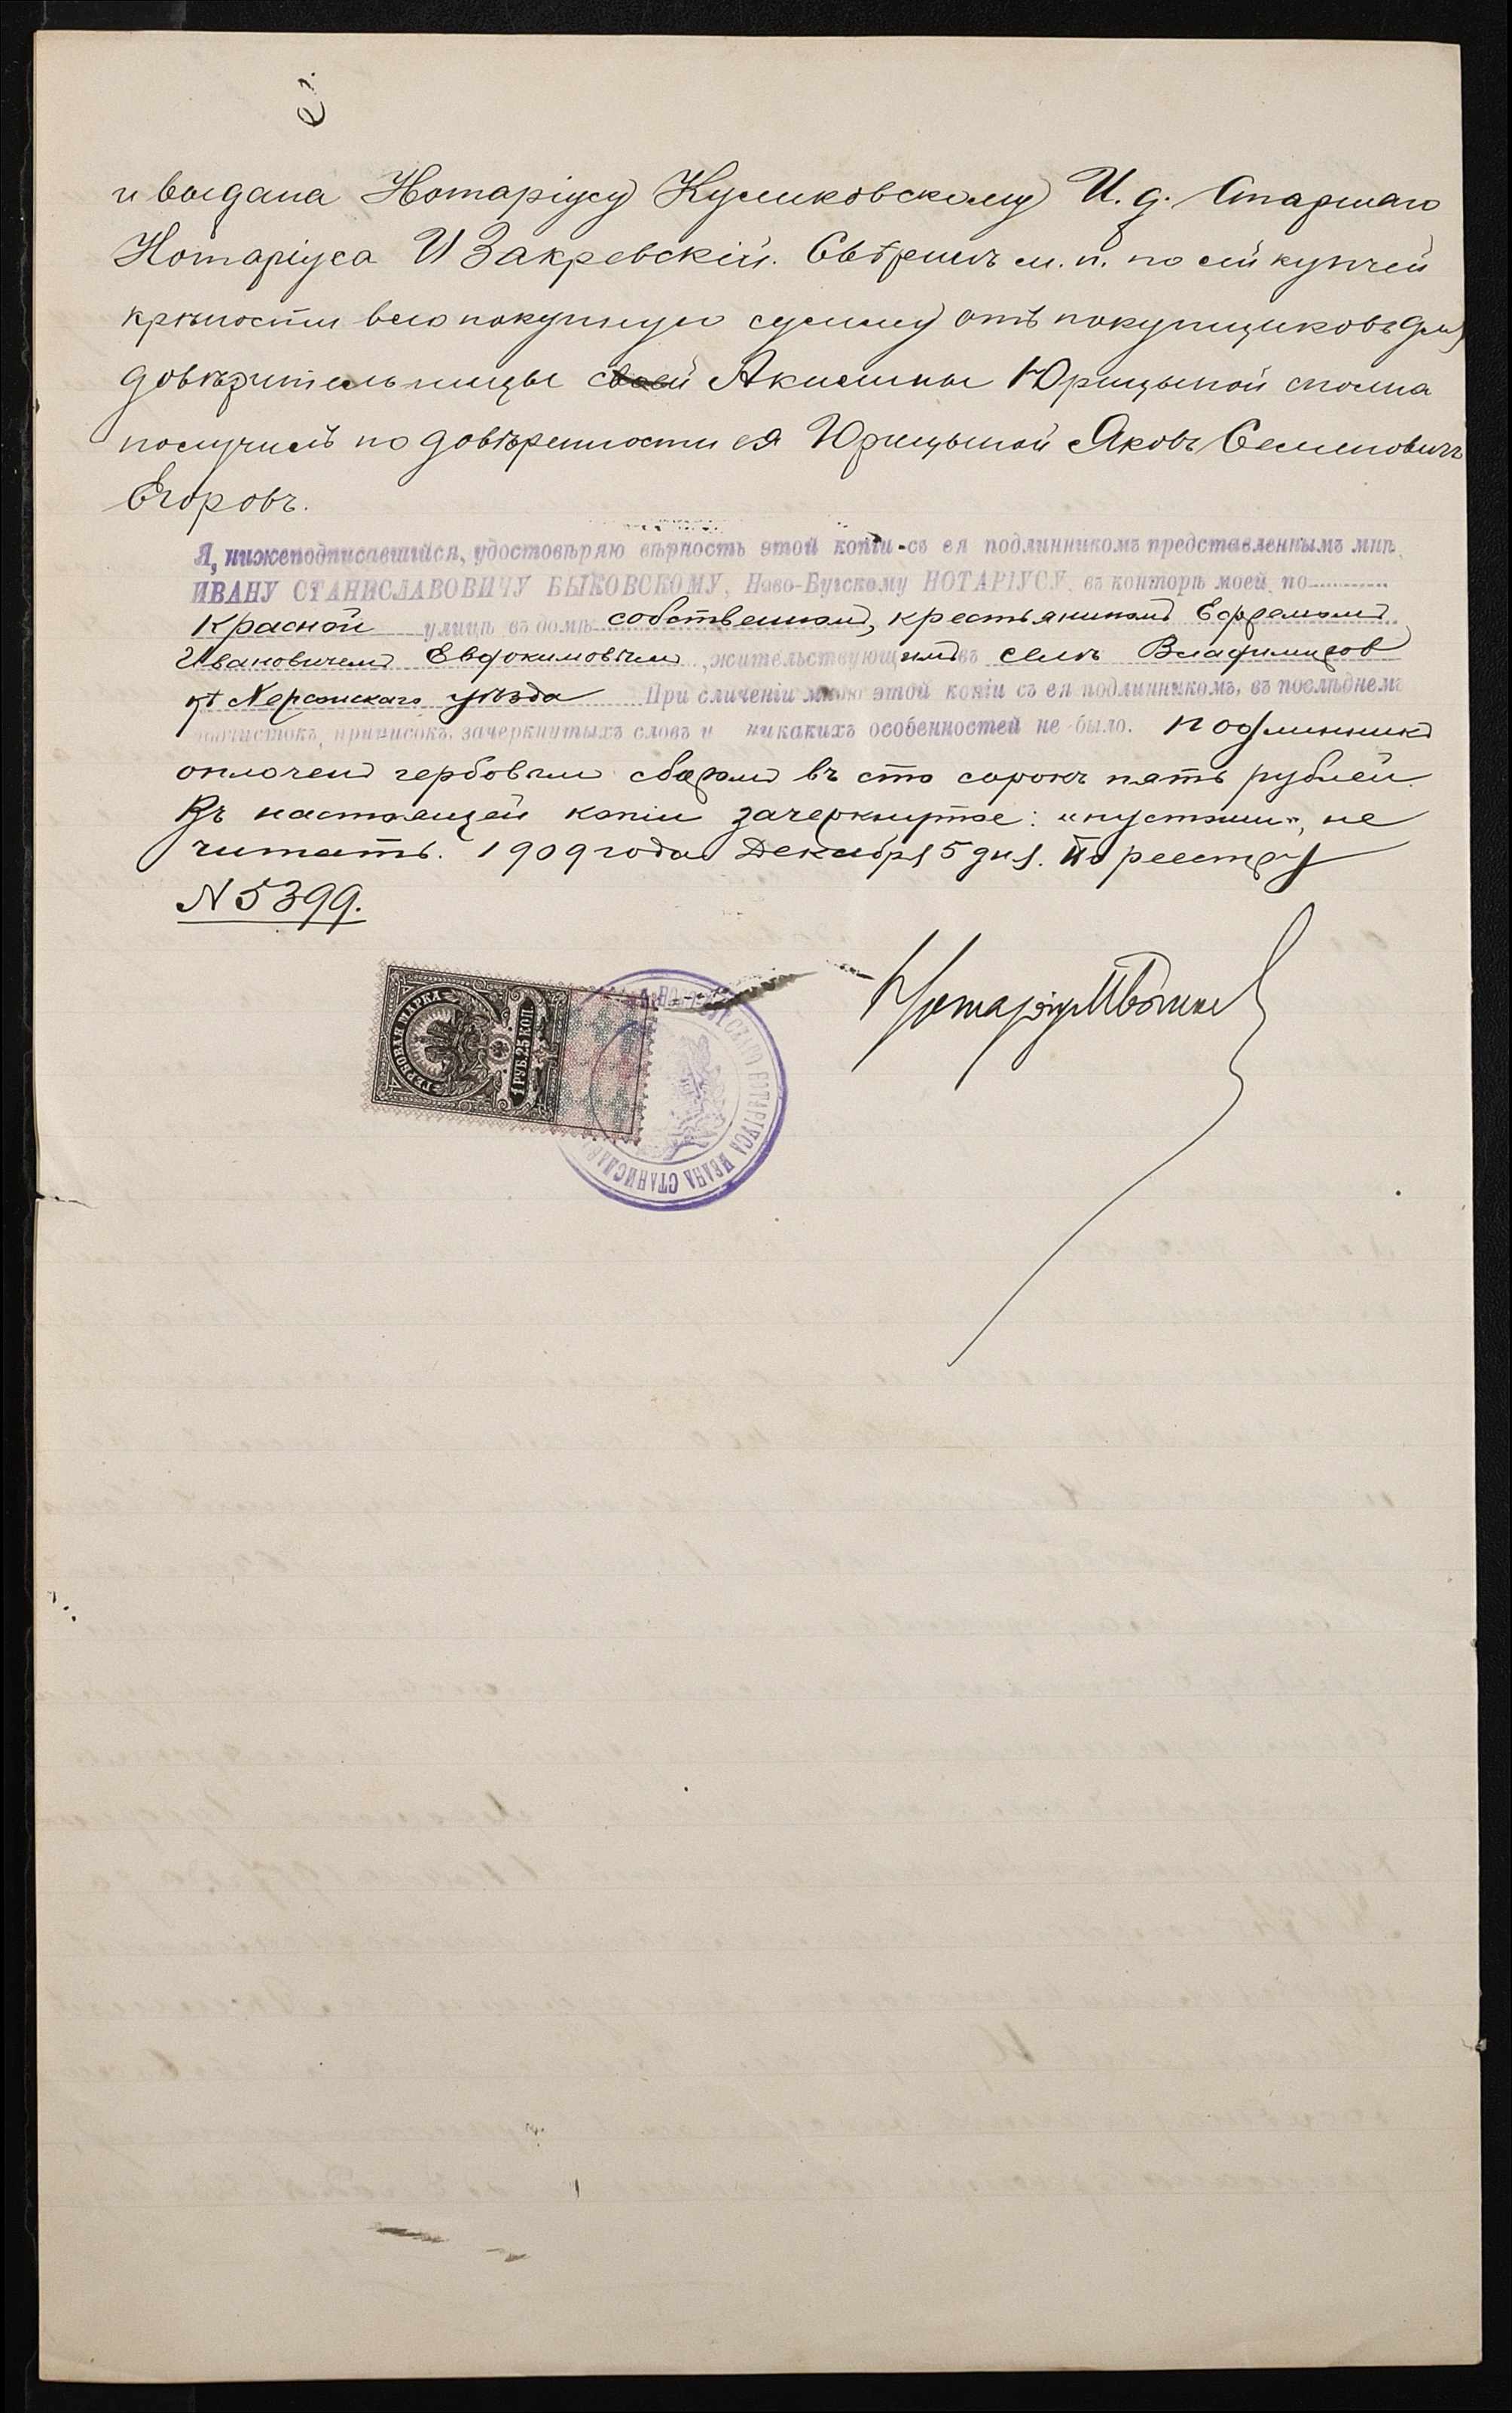 и выдана Нотаріусу Куликовскому И. д. Старшаго
Нотаріуса И Закревскій. Свѣрилъ м. п. по сей купчей
крѣпости всю покупную сумму отъ покупщиковъ для
довѣрительницы своей Акилины Юрицыной сполна
получилъ по довѣренности ея Юрицыной Яковъ Семеновичъ
Егоровъ.
Я, нижеподписавшійся, удостовѣряю вѣрность этой копіи съ ея подлинникомъ представленнымъ мнѣ,
ИВАНУ СТАНИСЛАВОВИЧУ БЫКОВСКОМУ, Ново-Бугскому НОТАРІУСУ, въ конторѣ моей, по
Красной улицѣ въ домѣ собственномъ, крестьяниномъ Ефремомъ
Ивановичемъ Евдокимовымъ, жительствующимъ въ селѣ Владимиров
кѣ Херсонскаго уѣзда При сличеніи мною этой копіи съ ея подлинникомъ, въ послѣднемъ
подчистокъ, приписокъ, зачеркнутыхъ словъ и никакихъ особенностей не было. Подлинникъ
оплоченъ гербовымъ сборомъ въ сто сорокъ пять рублей.
Въ настоящей копіи зачеркнутое: „своей", не
читать. 1909 года Декабря 5 дня. По реестру
N 5399.
Нотаріусъ
ГЕРБОВАЯ МАРКА
1 РУБ. 25 КОП.
НОТАРІУСА ИВАНА СТАНИСЛАВ